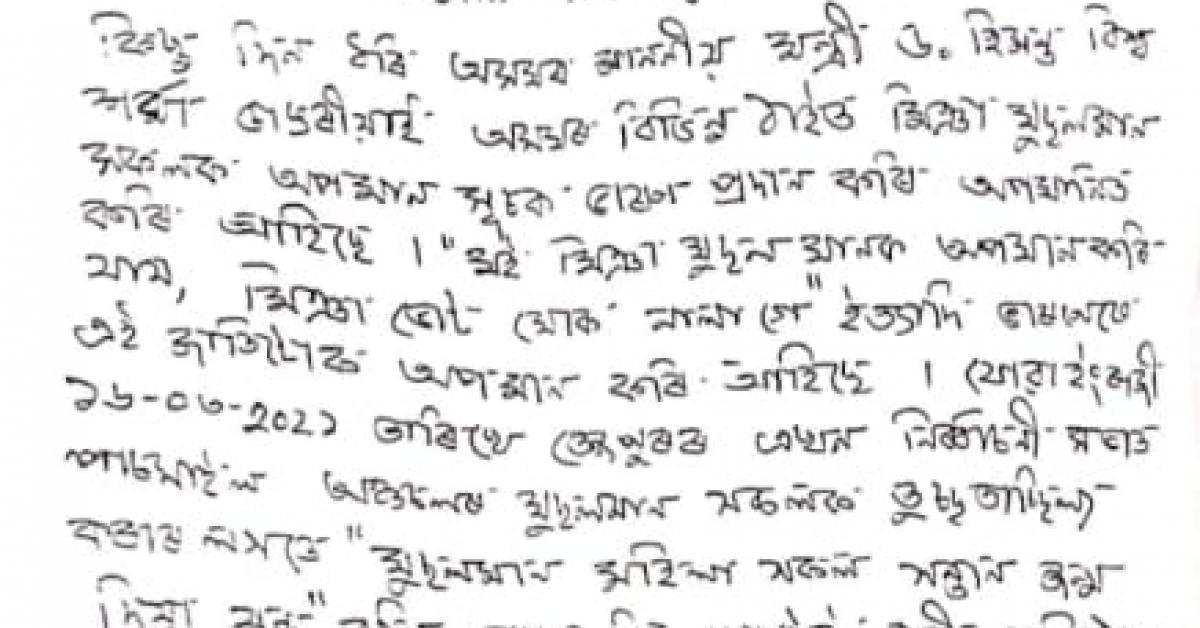 কিছু দিন ধৰি অসমৰ মাননীয় মন্ত্ৰী ড. হিমন্ত বিশ্ব
শৰ্মা ডাঙৰীয়াই অসমৰ বিভিন্ন ঠাইত মিঞা মুছলমান
সকলক অপমান সূচক ভাষণ প্ৰদান কৰি অপমানিত
কৰি আহিছে । "মই মিঞা মুছলমানক অপমান কৰি
যাম, মিঞা ভোট মোক নালাগে" ইত্যাদি ভাষণেৰে
এই জাতিটোক অপমান কৰি আহিছে । যোৱা ইংৰাজী
১৬-০৩-২০২১ তাৰিখে তেজপুৰৰ এখন নিৰ্বাচনী সভাত
পাচমাইল অঞ্চলৰ মুছলমান সকলক তুচ্ছতাচ্ছিল্য
কৰাৰ লগতে "মুছলমান মহিলা সকল সন্তান জন্ম
দিয়া